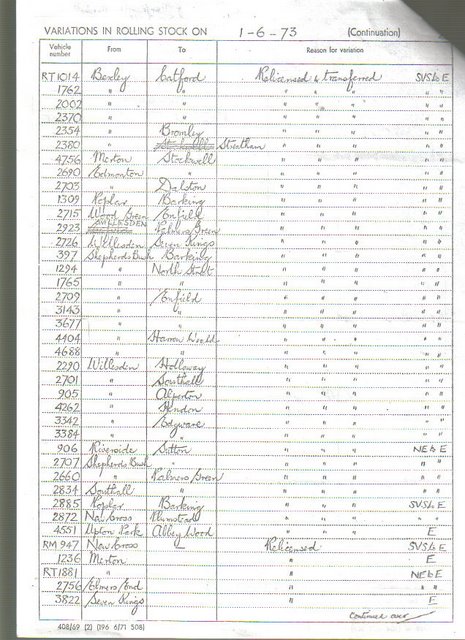 VARIATIONS IN ROLLING STOCK ON 1-6-73 (Continuation)
Vehicle number From To Reason for variation
RT1014 Bexley Catford Relicensed & transferred SVS to E
1762 " " " " " " "
2002 " " " " " " "
2370 " " " " " " "
2354 " Bromley " " " " "
2380 " Streatham " " " " "
4756 Merton Stockwell " " " " "
2690 Edmonton " " " " " "
2703 " Dalston " " " " "
1309 Poplar Barking " " " " "
2715 Wood Green Enfield " " " " "
2923 WILLESDEN Palmers Green " " " " "
2726 Willesden Seven Kings " " " " "
397 Shepherds Bush Barking " " " " "
1294 " North Street " " " " "
1765 " " " " " " "
2709 " Enfield " " " " "
3143 " " " " " " "
3677 " " " " " " "
4404 " Harrow Weald " " " " "
4688 " " " " " " "
2290 Willesden Holloway " " " " "
2701 " Southall " " " " "
905 " Alperton " " " " "
4262 " Hendon " " " " "
3342 " Edgware " " " " "
3384 " " " " " " "
906 Riverside Sutton " " " NE to E
2707 Shepherds Bush " " " " " "
2660 " Palmers Green " " " " "
2834 Southall " " " " " "
2885 Poplar Barking " " " SVS to E
2872 New Cross Plumstead " " " " "
4551 Upton Park Abbey Wood " " " E
RM 947 New Cross Relicensed SVS to E
1236 Merton " E
RT1881 " " NE to E
2756 Elmers End " " "
3822 Seven Kings " E
Continued over
408/69 (2) (196 6/71 508)